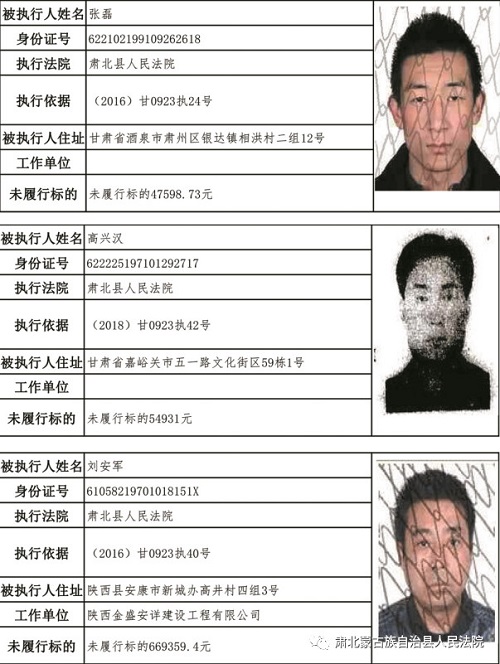 被执行人姓名 张磊
身份证号 622102199109262618
执行法院 肃北县人民法院
执行依据 （2016）甘0923执24号
被执行人住址 甘肃省酒泉市肃州区银达镇相洪村二组12号
工作单位
未履行标的 未履行标的47598.73元
被执行人姓名 高兴汉
身份证号 622225197101292717
执行法院 肃北县人民法院
执行依据 （2018）甘0923执42号
被执行人住址 甘肃省嘉峪关市五一路文化街区59栋1号
工作单位
未履行标的 未履行标的54931元
被执行人姓名 刘安军
身份证号 61058219701018151X
执行法院 肃北县人民法院
执行依据 （2016）甘0923执40号
被执行人住址 陕西县安康市新城办高井村四组3号
工作单位 陕西金盛安详建设工程有限公司
未履行标的 未履行标的669359.4元
肃北蒙古族自治县人民法院